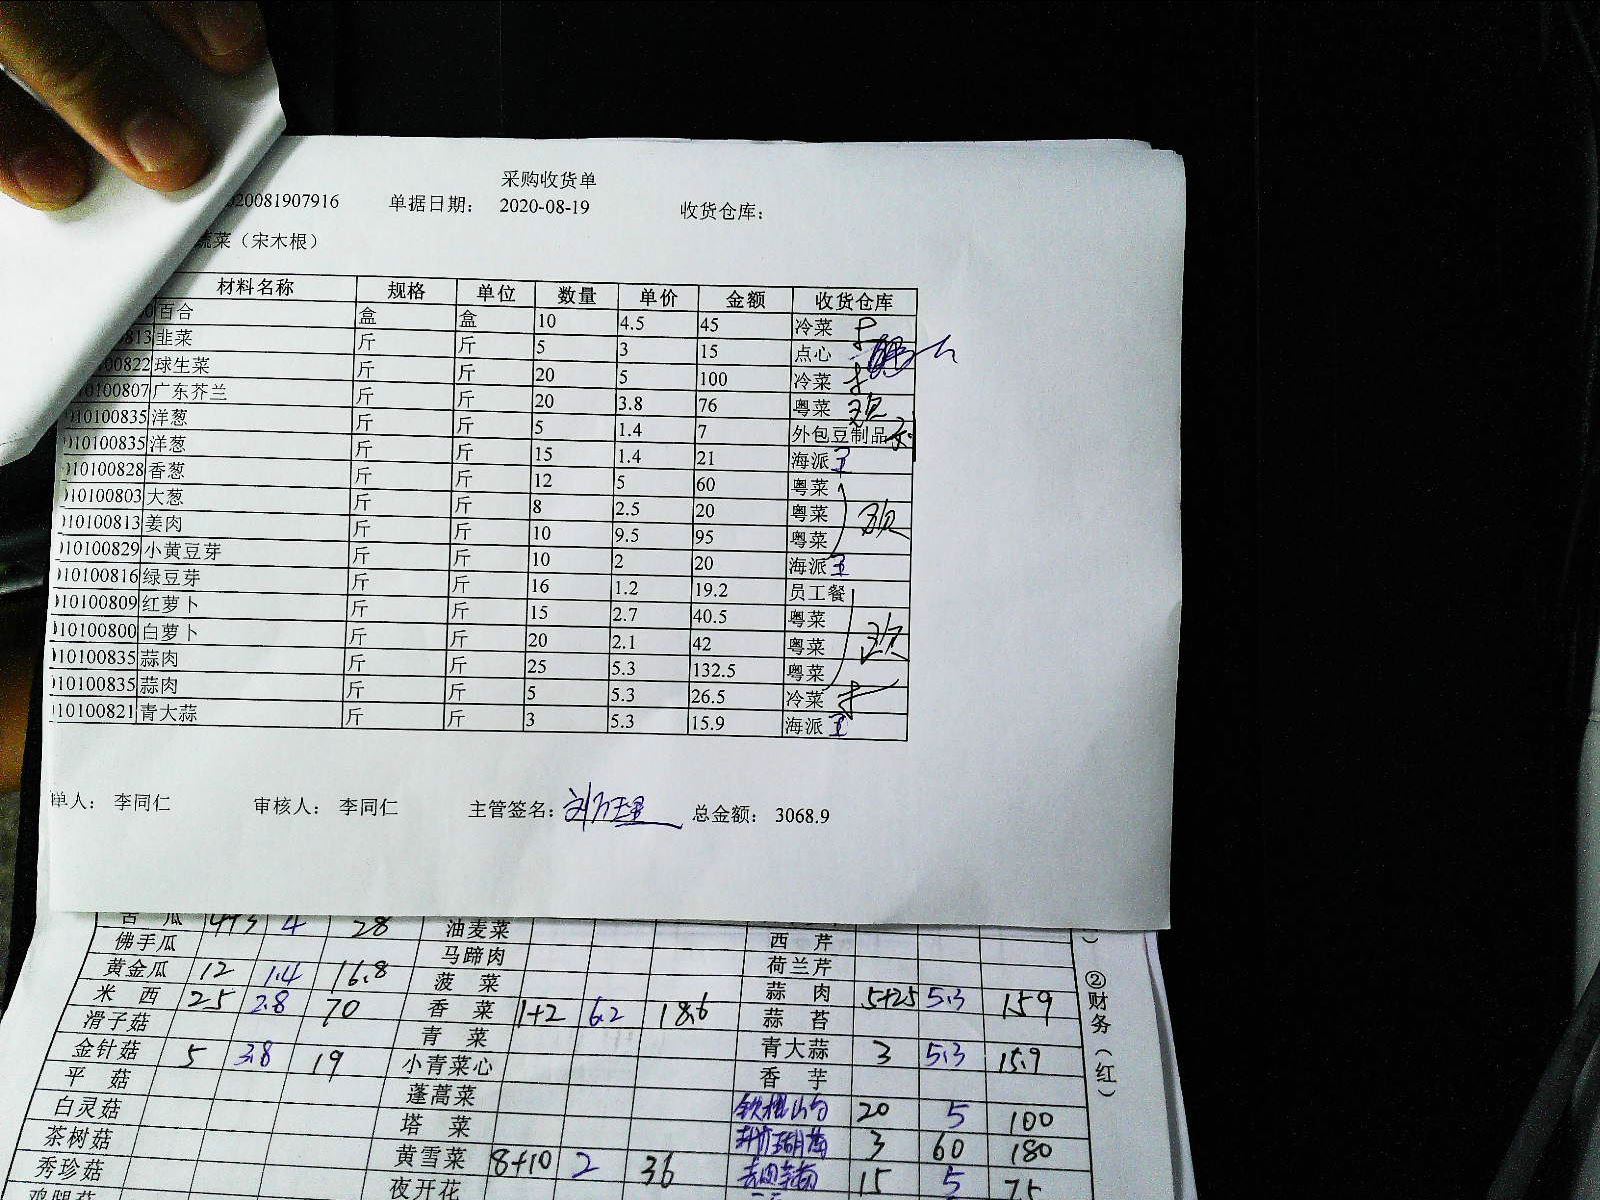 采购收货单
20081907916 单据日期： 2020-08-19 收货仓库：
蔬菜（宋木根）
材料名称 规格 单位 数量 单价 金额 收货仓库
百合 盒 盒 10 4.5 45 冷菜
813 韭菜 斤 斤 5 3 15 点心
00822 球生菜 斤 斤 20 5 100 冷菜
10100807 广东芥兰 斤 斤 20 3.8 76 粤菜
010100835 洋葱 斤 斤 5 1.4 7 外包豆制品
010100835 洋葱 斤 斤 15 1.4 21 海派 王
010100828 香葱 斤 斤 12 5 60 粤菜
010100803 大葱 斤 斤 8 2.5 20 粤菜
010100813 姜肉 斤 斤 10 9.5 95 粤菜
010100829 小黄豆芽 斤 斤 10 2 20 海派 王
010100816 绿豆芽 斤 斤 16 1.2 19.2 员工餐
010100809 红萝卜 斤 斤 15 2.7 40.5 粤菜
010100800 白萝卜 斤 斤 20 2.1 42 粤菜
010100835 蒜肉 斤 斤 25 5.3 132.5 粤菜
010100835 蒜肉 斤 斤 5 5.3 26.5 冷菜
010100821 青大蒜 斤 斤 3 5.3 15.9 海派 王
单人： 李同仁 审核人： 李同仁 主管签名： 总金额： 3068.9
苦瓜 4+3 4 28 油麦菜
佛手瓜 马蹄肉 西芹
黄金瓜 12 1.4 16.8 菠菜 荷兰芹
米西 25 2.8 70 香菜 1+2 6.2 18.6 蒜肉 5+25 5.3 159
滑子菇 青菜 蒜苔
金针菇 5 3.8 19 小青菜心 青大蒜 3 5.3 15.9
平菇 蓬蒿菜 香芋
白灵菇 塔菜 铁棍山 20 5 100
茶树菇 黄雪菜 8+10 2 36 3 60 180
秀珍菇 夜开花 15 5 75
鸡腿菇
②财务（红）